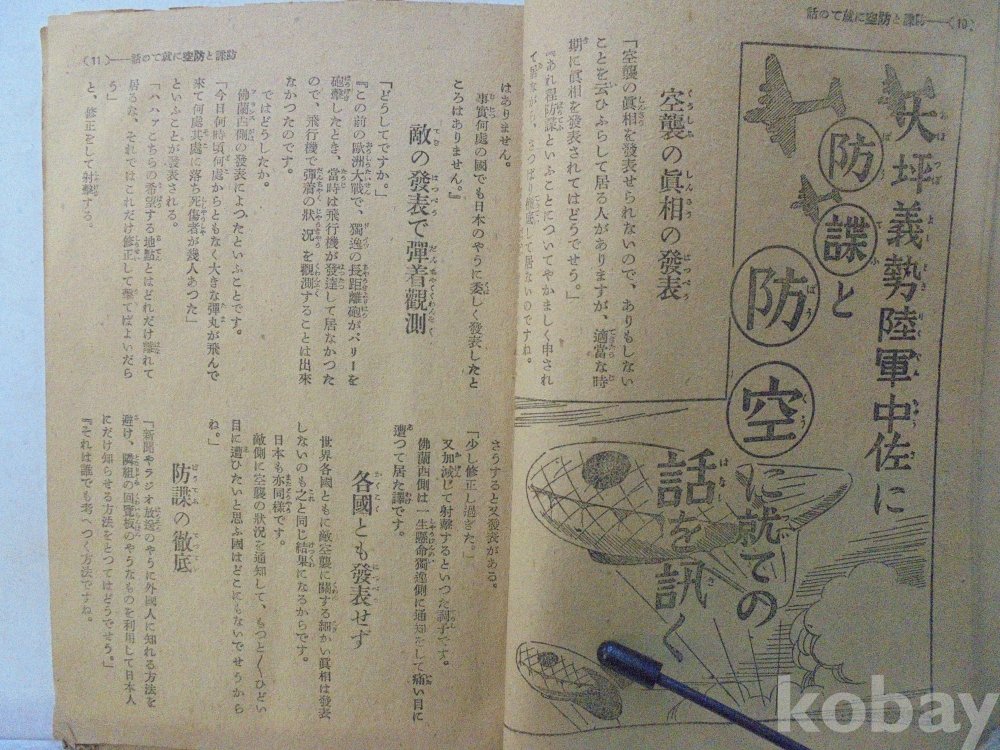 (10)——防諜と防空に就ての話
大坪義勢陸軍中佐に
防諜と
防空に就ての
話を訊く
空襲の眞相の發表
「空襲の眞相を發表せられないので、ありもしない
ことを云ひふらして居る人がありますが、適當な時
期に眞相を發表されてはどうでせう。」
『あれ程防諜といふことについてやかましく申され
て居ながら、さつぱり徹底して居ないのですね。
防諜と防空に就ての話——(11)
はありません。
事實何處の國でも日本のやうに委しく發表したと
ころはありません。』
敵の發表で彈着觀測
「どうしてですか。」
『この前の歐洲大戰で、獨逸の長距離砲がパリーを
砲擊したとき、當時は飛行機が發達して居なかつた
ので、飛行機で彈着の狀況を觀測することは出來
なかつたのです。
ではどうしたか。
佛蘭西側の發表によつたといふことです。
「今日何時頃何處からともなく大きな彈丸が飛んで
來て何處其處に落ち死傷者が幾人あつた」
といふことが發表される。
「ハハアこちらの希望する地點とはどれだけ離れて
居るな、それではこれだけ修正して擊てばよいだら
う」
と、修正をして射擊する。
さうすると又發表がある。
「少し修正し過ぎた。」
又加減して射擊するといつた調子です。
佛蘭西側は一生懸命獨逸側に通知をして痛い目に
遭つて居た譯です。
各國とも發表せず
世界各國ともに敵空襲に關する細かい眞相は發表
しないのも之と同じ結果になるからです。
日本も亦同樣です。
敵側に空襲の狀況を通知して、もつと〳〵ひどい
目に遭ひたいと思ふ國はどこにもないでせうから
ね。」
防諜の徹底
「新聞やラジオ放送のやうに外國人に知れる方法を
避け、隣組の回覽板のやうなものを利用して日本人
にだけ知らせる方法をとつてはどうでせう。」
『それは誰でも考へつく方法ですね。
kobay